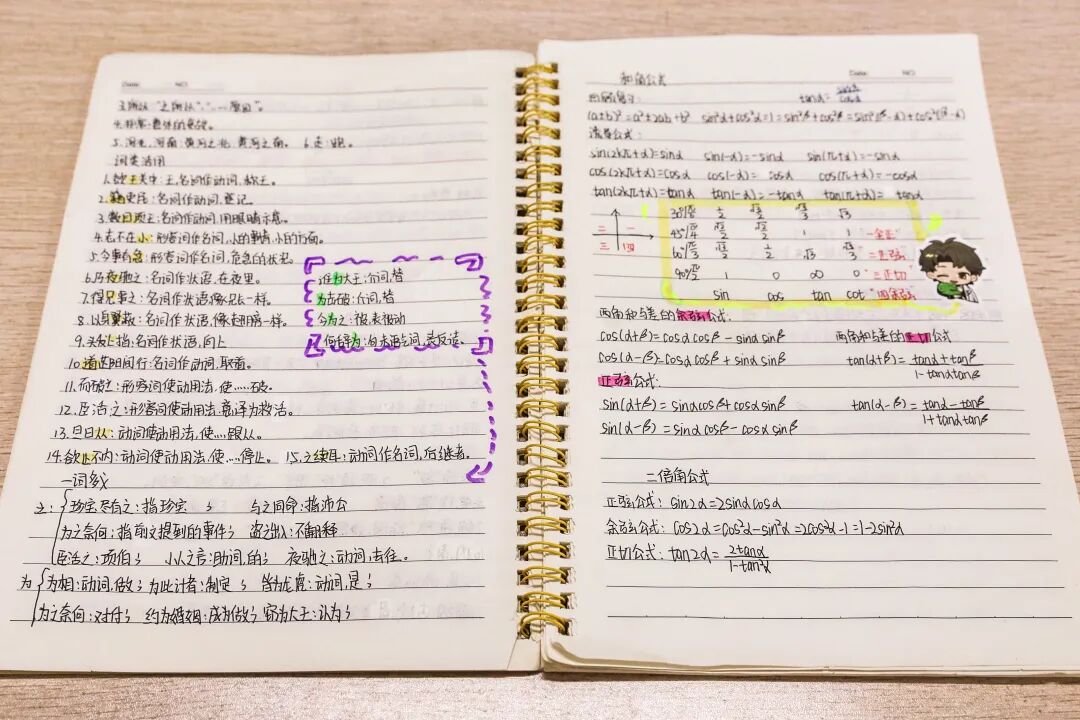 Date: NO.
3.所以:"之所以","…原因"。
4.非常:意外的变故。
5.河北,河南:黄河之北,黄河之南。 6.走:跑。
词类活用
1.欲王关中:王,名词作动词,称王。
2.籍吏民:名词作动词,登记。
3.数目项王:名词作动词,用眼睛示意。
4.志不在小:形容词作名词,小的事情,小的方面。
5.今事有急:形容词作名词,危急的状况。
6.乃夜驰之:名词作状语,在夜里。
7.得兄事之:名词作状语,像兄一样。
8.以身翼蔽:名词作状语,像翅膀一样。
9.头发上指:名词作状语,向上
10.道芷阳间行:名词作动词,取道。
11.而破之:形容词使动用法,使……破。
12.臣活之:形容词使动用法,意译为救活。
13.旦日从:动词使动用法,使…跟从。
14.欲止不内:动词使动用法,使…停止。 15.之续耳:动词作名词,后继者。
谁为大王:介词,替
为击破:介词,替
今为之:被,表被动
何辞为:句末语气词,表反诘。
一词多义
之: 珍宝尽有之:指珍宝 ; 与之同命:指沛公
为之奈何:指前文提到的事件; 盗之出入:不翻译
臣活之:项伯; 小人之言:助词,的; 夜驰之:动词,去往。
为 为相:动词,做; 为此计者:制定 ; 皆为龙虎:动词,是;
为之奈何:对付; 约为婚姻:成为,做; 窃为大王:认为;
Date: NO.
和角公式
tanα=sinα/cosα
(a+b)²=a²+2ab+b² sin²α+cos²α=1=sin²β+cos²β=sin²(β-α)+cos²(β-α)
诱导公式:
sin(2kπ+α)=sinα sin(-α)=-sinα sin(π+α)=-sinα
cos(2kπ+α)=cosα cos(-α)=cosα cos(π+α)=-cosα
tan(2kπ+α)=tanα tan(-α)=-tanα tan(π+α)=tanα
二 一
三 四
30°/π/6 1/2 √3/2 √3/3 √3
45°/π/4 √2/2 √2/2 1 1 一全正
60°/π/3 √3/2 1/2 √3 √3/3 二正弦
90°/π/2 1 0 ∞ 0 三正切
sin cos tan cot 四余弦
两角和与差的余弦公式:
cos(α+β)=cosαcosβ-sinαsinβ 两角和与差的正切公式
cos(α-β)=cosαcosβ+sinαsinβ tan(α+β)=tanα+tanβ/1-tanαtanβ
正弦公式:
sin(α+β)=sinαcosβ+cosαsinβ tan(α-β)=tanα-tanβ/1+tanαtanβ
sin(α-β)=sinαcosβ-cosαsinβ
二倍角公式
正弦公式: sin2α=2sinαcosα
余弦公式: cos2α=cos²α-sin²α=2cos²α-1=1-2sin²α
正切公式: tan2α=2tanα/1-tan²α